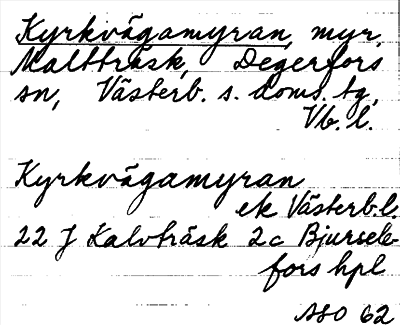 Kyrkvägamyran, myr,
Maltträsk, Degerfors
sn, Västerb. s. doms. tg,
Vb. l.
Kyrkvägamyran
ek Västerb. l.
22 J Kalvträsk 2c Bjursele-
fors hpl
ASO 62